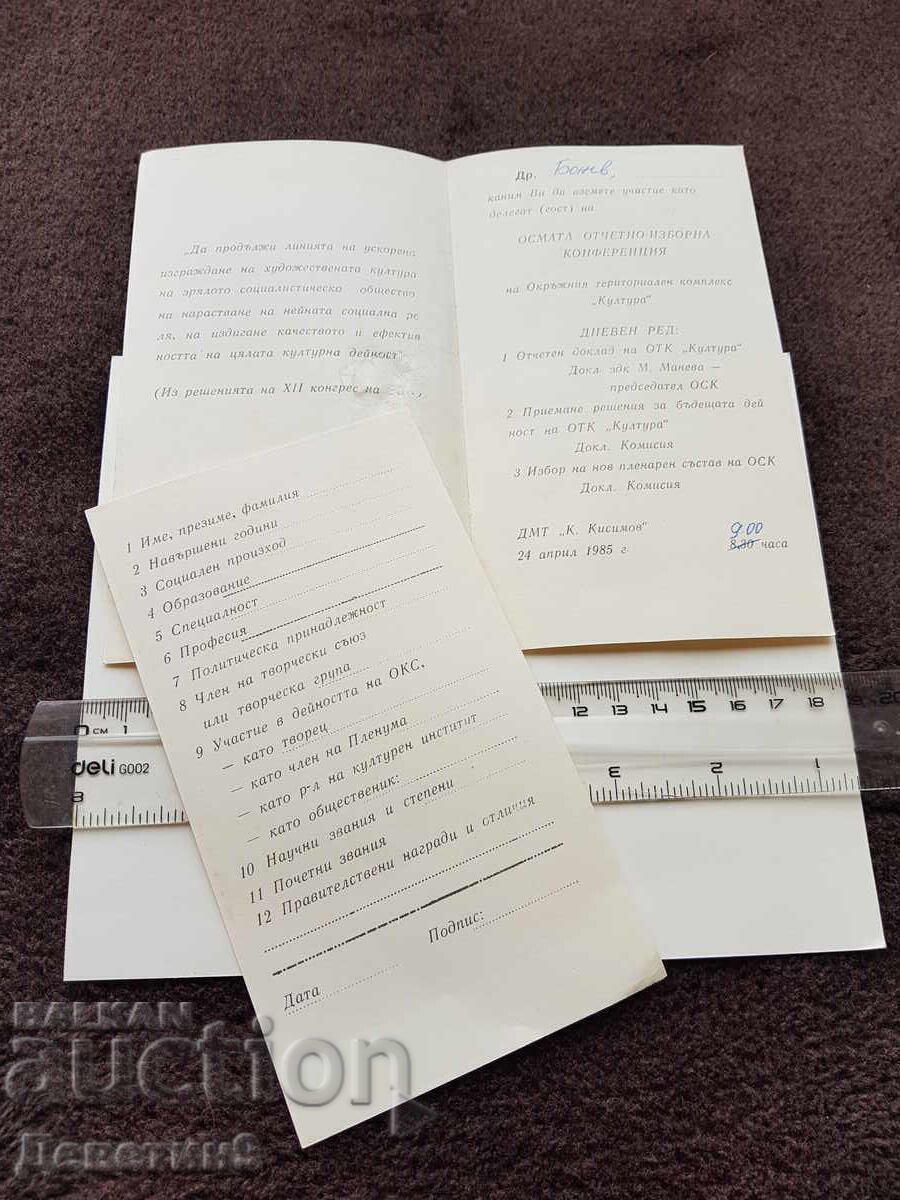 „Да продължи линията на ускорено
изграждане на художествената култура
на зрялото социалистическо общество
на нарастване на нейната социална ро
ля, на издигане качеството и ефектив
ността на цялата културна дейност“
(Из решенията на XII конгрес на
Др. Божев,
каним Ви да вземете участие като
делегат (гост) на
ОСМАТА ОТЧЕТНО-ИЗБОРНА
КОНФЕРЕНЦИЯ
на Окръжния териториален комплекс
„Култура“
ДНЕВЕН РЕД:
1 Отчетен доклад на ОТК „Култура“
Докл. здк М. Манева —
председател ОСК
2 Приемане решения за бъдещата дей
ност на ОТК „Култура“
Докл. Комисия
3 Избор на нов пленарен състав на ОСК
Докл. Комисия
ДМТ „К. Кисимов“ 9 00
24 април 1985 г 8,30 часа
1 Име, презиме, фамилия
2 Навършени години
3 Социален произход
4 Образование
5 Специалност
6 Професия
7 Политическа принадлежност
8 Член на творчески съюз
или творческа група
9 Участие в дейността на ОКС,
— като творец
— като член на Пленума
— като р-л на културен институт
— като общественик:
10 Научни звания и степени
11 Почетни звания
12 Правителствени награди и отличия
Подпис:
Дата
0 см 1 12 13 14 15 16 17 18 20
deli G002
8 3 2 1
BALKAN
auction
Деветин9